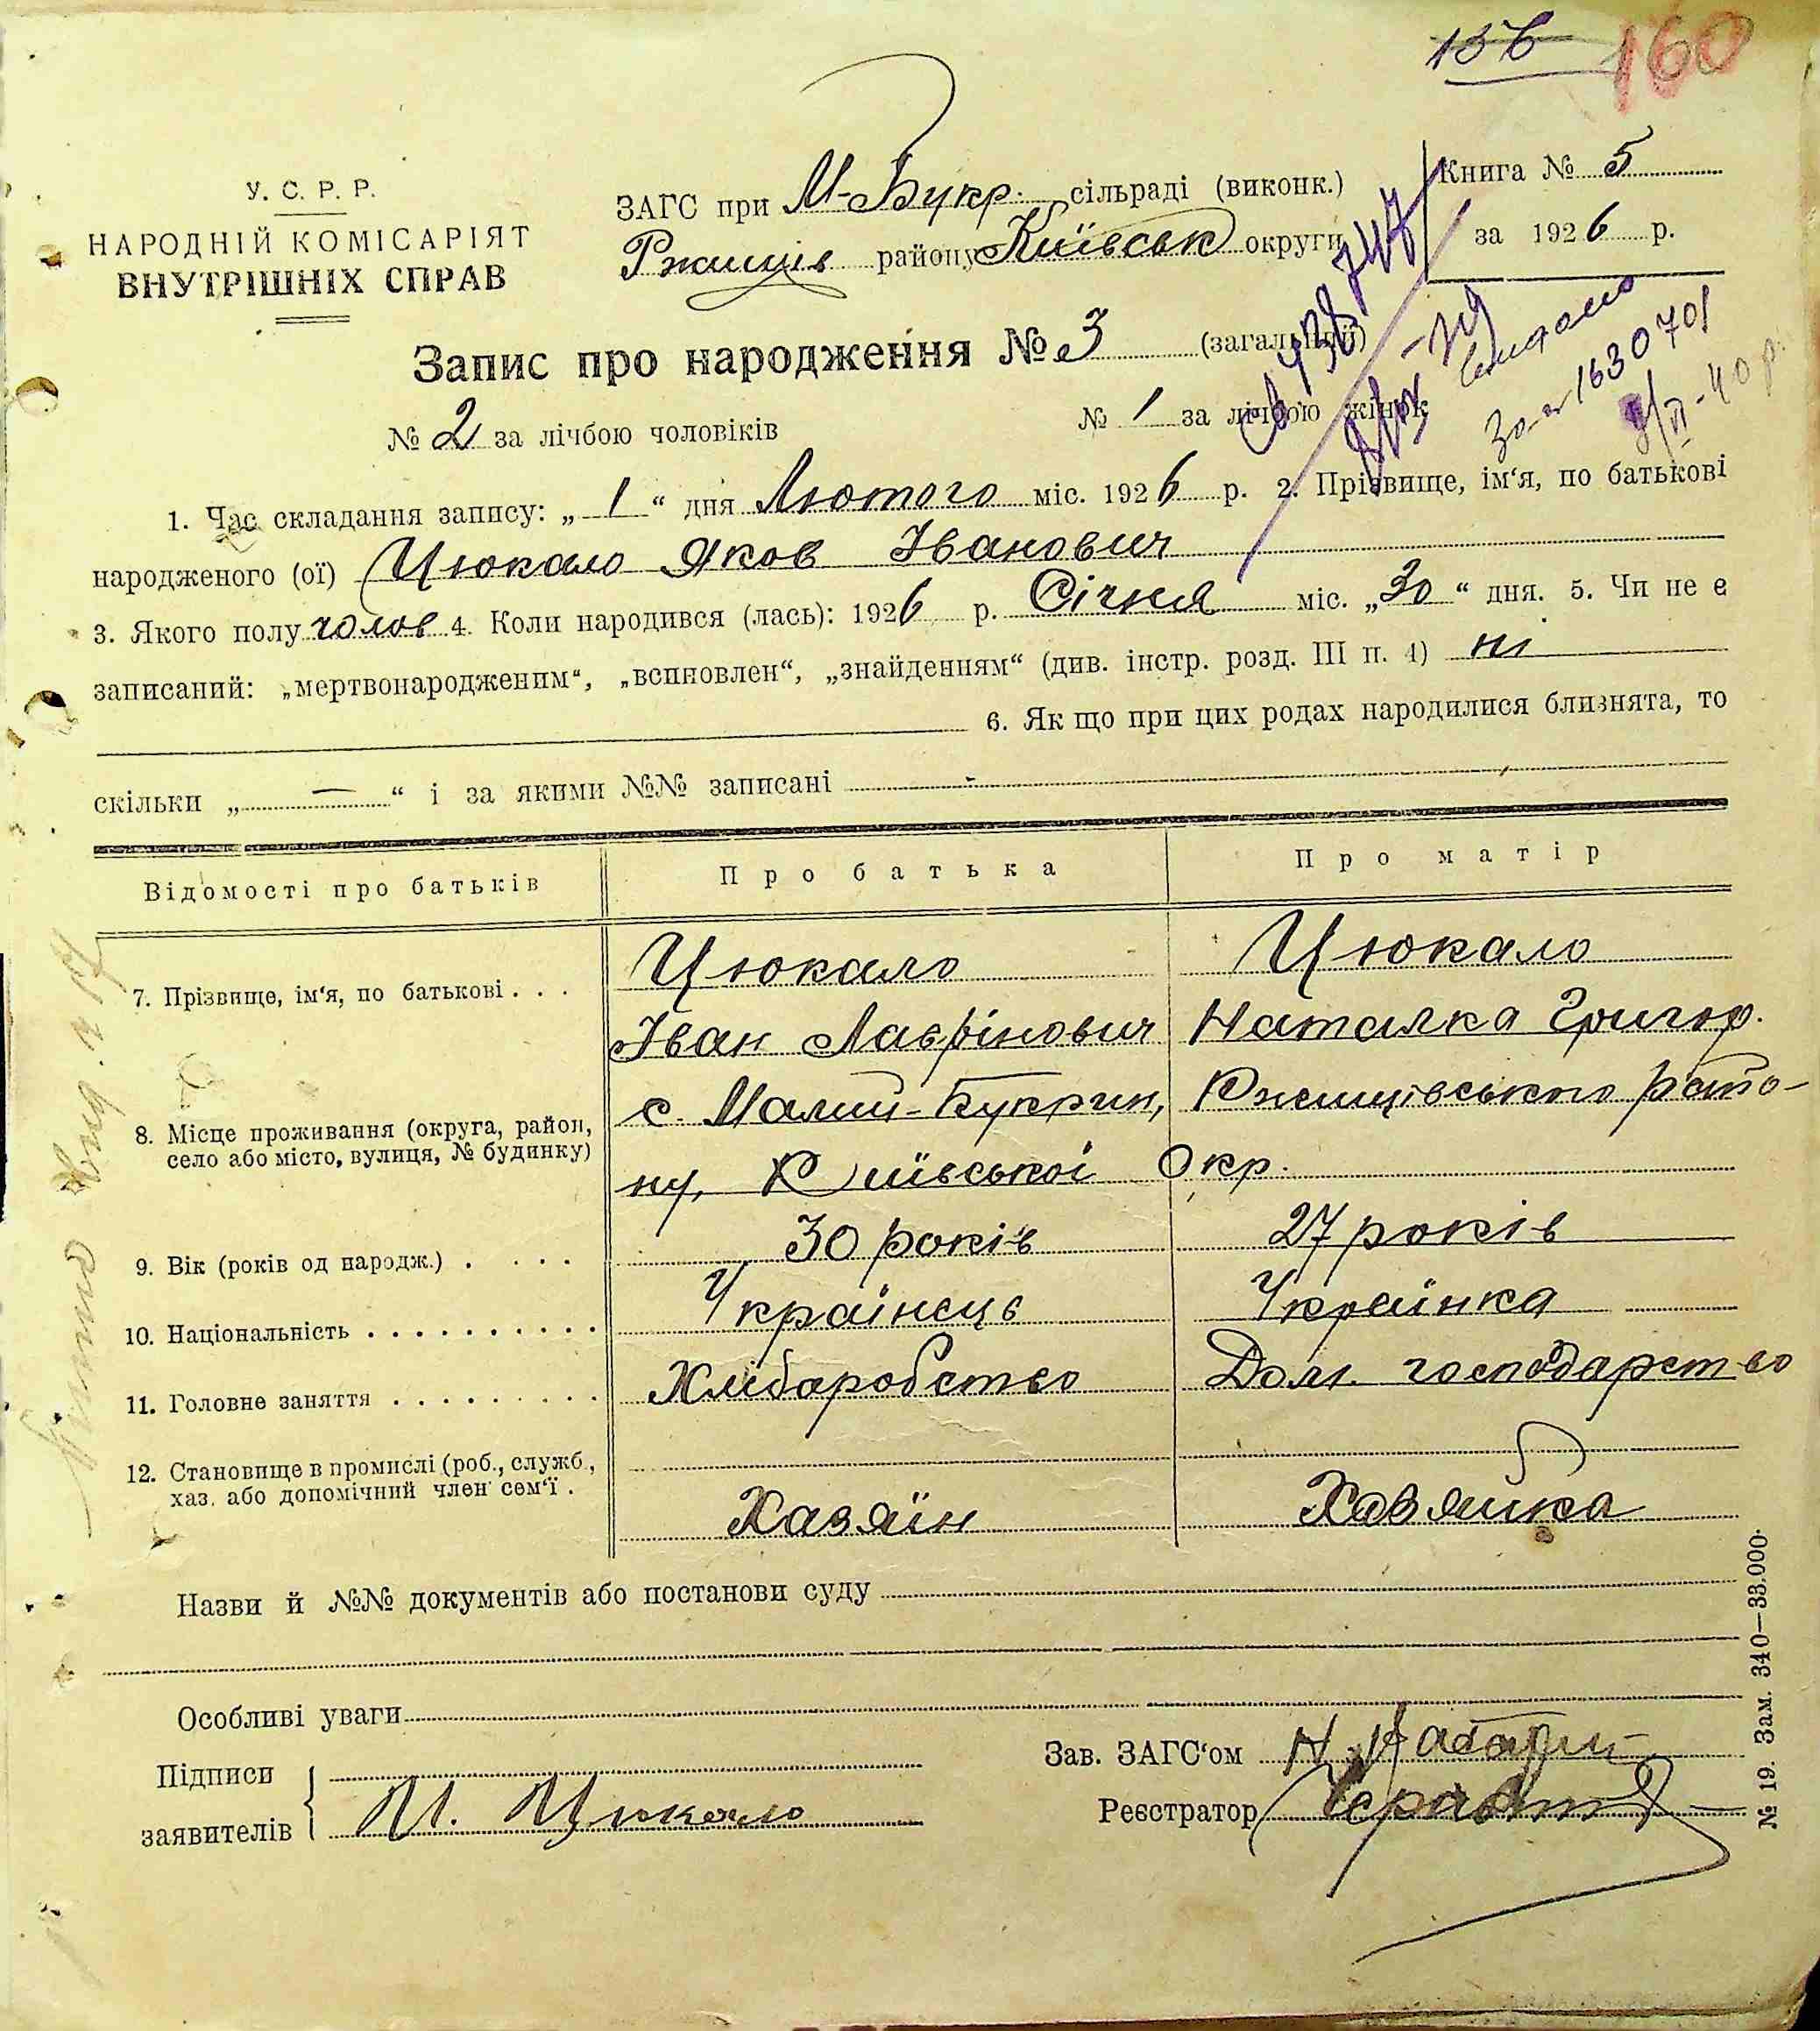 156 160
У. С. Р. Р.
НАРОДНІЙ КОМІСАРІЯТ
ВНУТРІШНІХ СПРАВ
ЗАГС при М-Букр. сільраді (виконк.)
Ржищів району Київськ округи
Книга № 5
за 1926 р.
Запис про народження № 3 (загальний)
№ 2 за лічбою чоловіків № 1 за лічбою жінок
1630701
1. Час складання запису: „ 1 “ дня Лютого міс. 1926 р. 2. Прізвище, ім‘я, по батькові
народженого (ої) Цюкало Яков Іванович
3. Якого полу чолов 4. Коли народився (лась): 1926 р. Січня міс. „30“ дня. 5. Чи не є
записаний: „мертвонародженим“, „вспновлен“, „знайденням“ (див. інстр. розд. III п. 4) ні
6. Як що при цих родах народилися близнята, то
скільки „ — “ і за якими №№ записані -
Відомості про батьків Про батька Про матір
7. Прізвище, ім‘я, по батькові . . . Цюкало Цюкало
Іван Лаврінович Наталка Григор.
8. Місце проживання (округа, район, село або місто, вулиця, № будинку) с. Малий-Букрин, Ржищівського райо-
ну, Київської Окр.
9. Вік (років од народж.) . . . . 30 років 27 років
10. Національність . . . . . . . . . . Українець Українка
11. Головне заняття . . . . . . . . . Хліборобство Дом. господарство
12. Становище в промислі (роб., служб., хаз. або допомічний член сем‘ї . Хазяїн Хазяйка
Назви й №№ документів або постанови суду
Особливі уваги
Підписи
заявителів И. Цюкало
Зав. ЗАГС‘ом
Реєстратор
№ 19. Зам. 340—33.000.